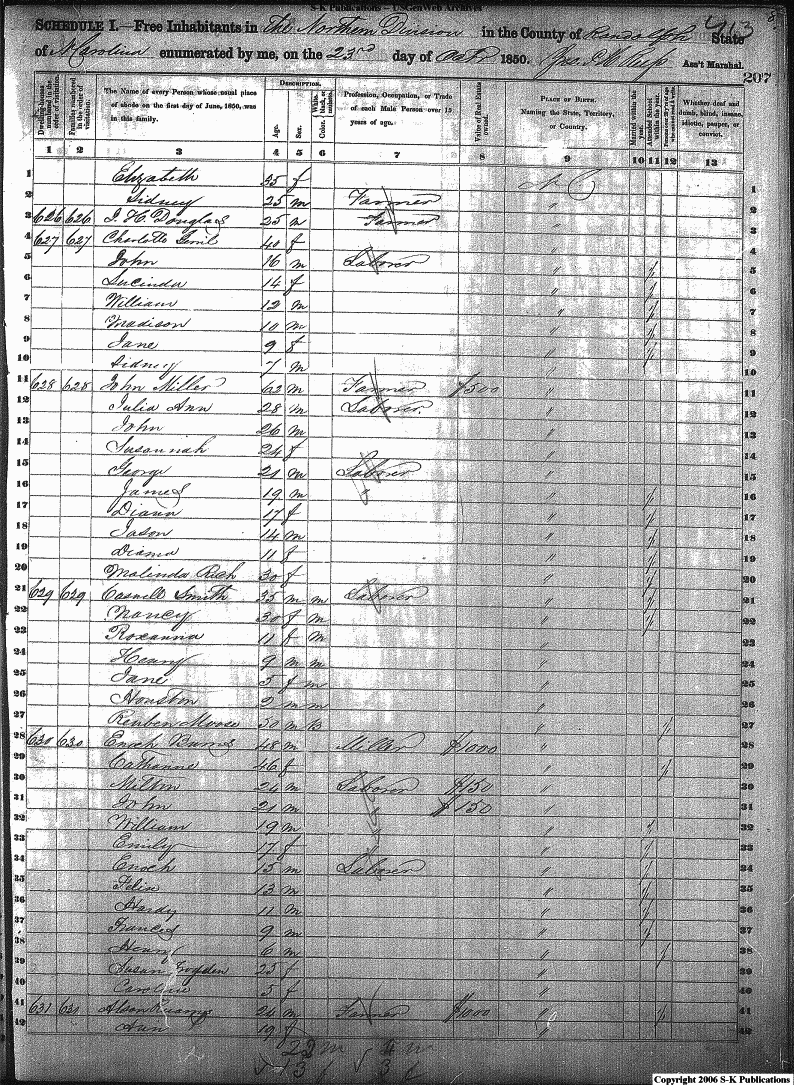 S-K Publications - USGenWeb Archives
SCHEDULE I.—Free Inhabitants in The Northern Division in the County of Randolph State 413
of N Carolina enumerated by me, on the 23rd day of Octr 1850. Ass't Marshal.
207
Dwelling-houses numbered in the order of visitation.
Families numbered in the order of visitation.
The Name of every Person whose usual place of abode on the first day of June, 1850, was in this family.
DESCRIPTION.
Age.
Sex.
White, black, or mulatto.
Color.
Profession, Occupation, or Trade of each Male Person over 15 years of age.
Value of Real Estate owned.
PLACE OF BIRTH.
Naming the State, Territory, or Country.
Married within the year.
Attended School within the year.
Whether deaf and dumb, blind, insane, idiotic, pauper, or convict.
1 2 3 4 5 6 7 8 9 10 11 12 13
1 Elizabeth 35 f N C 1
2 Sidney 25 m Farmer " 2
3 626 626 J. H. Douglas 25 m Farmer " 3
4 627 627 Charlotte 40 f " 4
5 John 16 m Laborer " / 5
6 Lucinda 14 f " / 6
7 William 12 m " / 7
8 Madison 10 m " / 8
9 Jane 9 f " / 9
10 Sidney 7 m " 10
11 628 628 John Miller 62 m Farmer $500 " 11
12 Julia Ann 28 m Laborer " 12
13 John 26 m " 13
14 Susannah 24 f " 14
15 George 21 m Laborer " 15
16 James 19 m " " / 16
17 Diann 17 f " / 17
18 Jason 14 m " / 18
19 Diama 11 f " / 19
20 Malinda Rich 30 f " / 20
21 629 629 Caswell Smith 35 m m Laborer " / 21
22 Nancy 30 f m " / 22
23 Roxanna 11 f m " 23
24 Henry 9 m m " 24
25 Jane 5 f m " 25
26 Houston 2 m m " 26
27 Reuben Moose 50 m B " / 27
28 630 630 Enoch Burns 48 m Miller $1000 " 28
29 Catharine 46 f " / 29
30 Milton 24 m Laborer $150 " 30
31 John 21 m $150 " 31
32 William 19 m " / 32
33 Emily 17 f " / 33
34 Enoch 15 m Laborer " / 34
35 Felix 13 m " / 35
36 Hardy 11 m " / 36
37 Frances 9 m " / 37
38 Henry 6 m " / 38
39 Susan 25 f " 39
40 Caroline 5 f " 40
41 631 631 24 m Farmer $1000 " / 41
42 Ann 19 f " 42
22 m 4 m
13 f 3 f
Copyright 2006 S-K Publications